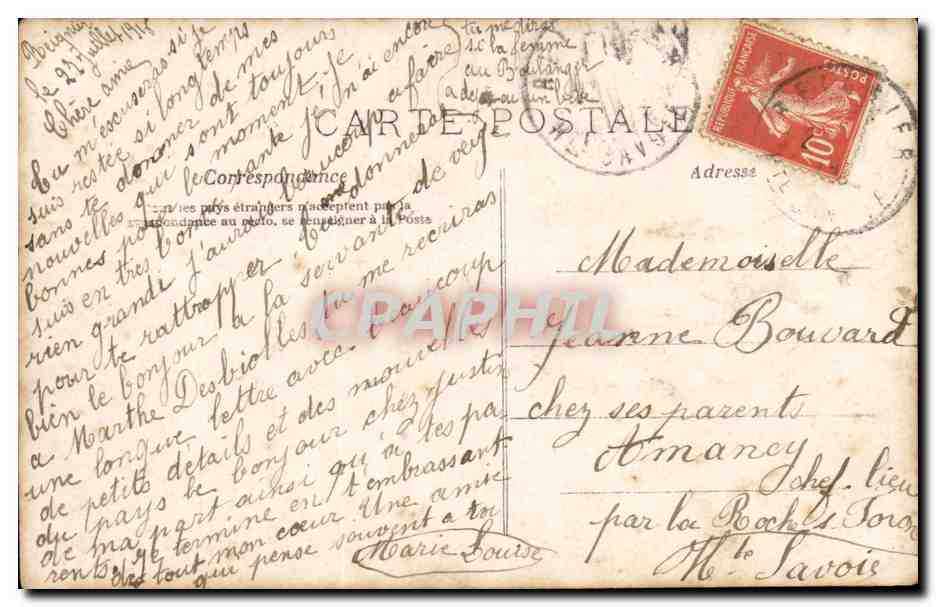 Reignier
le 23 juillet 1915
Chère amie
Tu m'escuseras si je
suis restée si longtemps
sans te donner de mes
nouvelles qui sont toujours
bonnes pour le moment je
suis en très bonne santé je n'ai encore
rien grandi j'aurai beaucoup a faire
pour te rattrapper tu me donneras
bien le bonjour a la servante de veyi
a Marthe Desbiolles tu me recriras
une longue lettre avec beaucoup
de petits détails et des nouvelles
du pays le bonjour chez justin
de ma part ainsi qu'à tes pa
rents, je termine en t'embrassant
de tout mon cœur. Une amie
qui pense souvent a toi
Marie Lourse
tu me diras
si la femme
au Boulanger
a deja eu un bebe
CARTE POSTALE
Correspondance
les pays étrangers n'acceptent pas la
correspondance au recto, se renseigner à la Poste
Adresse
REPUBLIQUE FRANÇAISE
POSTES
10c
Mademoiselle
Jeanne Bouvard
chez ses parents
Amancy
chef-lieu
par la Roche s. Foron
Hte Savoie
CPAPHIL